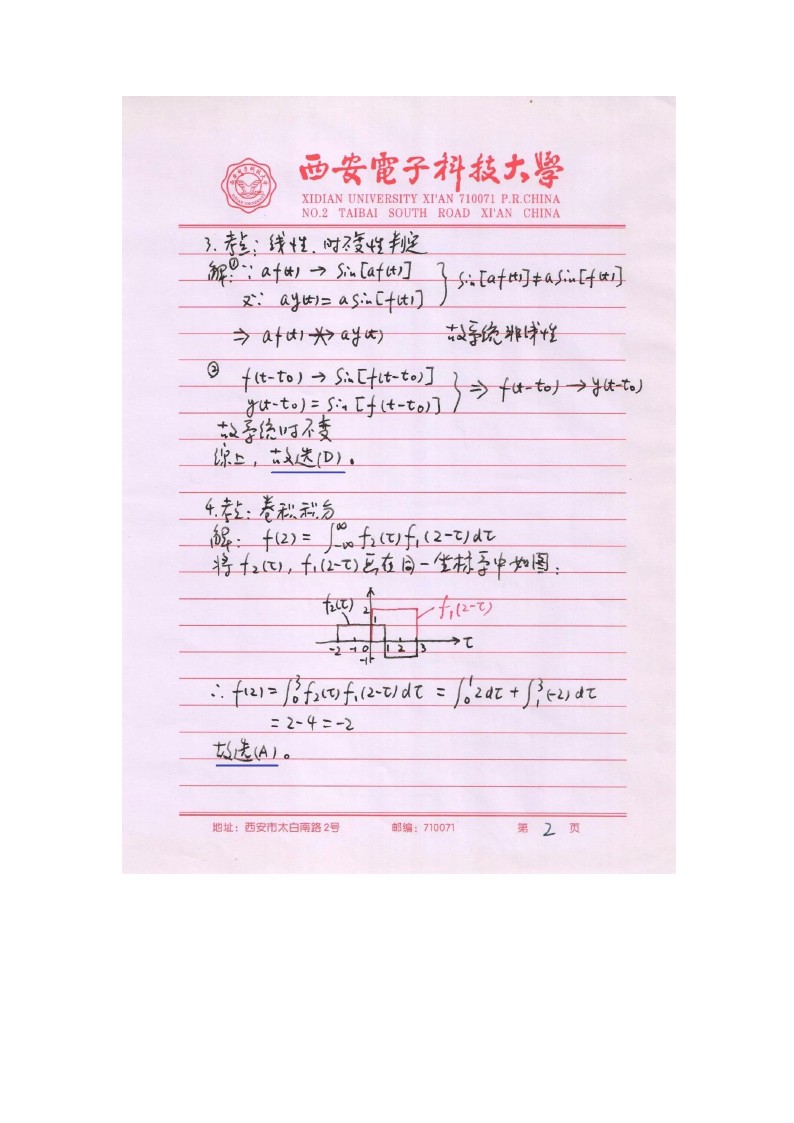 西安電子科技大學
XIDIAN UNIVERSITY XI'AN 710071 P.R.CHINA
NO.2 TAIBAI SOUTH ROAD XI'AN CHINA
3. 考点: 线性、时不变性判定
解:① ∵ af(t) → sin[af(t)] } sin[af(t)]≠a sin[f(t)]
又∵ ay(t) = a sin[f(t)]
⇒ af(t) ↛ ay(t) 故系统非线性
② f(t-t₀) → sin[f(t-t₀)] } ⇒ f(t-t₀) → y(t-t₀)
y(t-t₀) = sin[f(t-t₀)]
故系统时不变
综上, 故选(D)。
4. 考点: 卷积积分
解: f(2) = ∫_{-∞}^{∞} f₂(τ)f₁(2-τ)dτ
将 f₂(τ), f₁(2-τ) 画在同一坐标系中如图:
f₂(τ) 2 1 f₁(2-τ)
-2 -1 0 1 2 3 τ
-1
∴ f(2) = ∫₀³ f₂(τ)f₁(2-τ)dτ = ∫₀¹ 2dτ + ∫₁³ (-2)dτ
= 2-4 = -2
故选(A)。
地址: 西安市太白南路2号 邮编: 710071 第 2 页